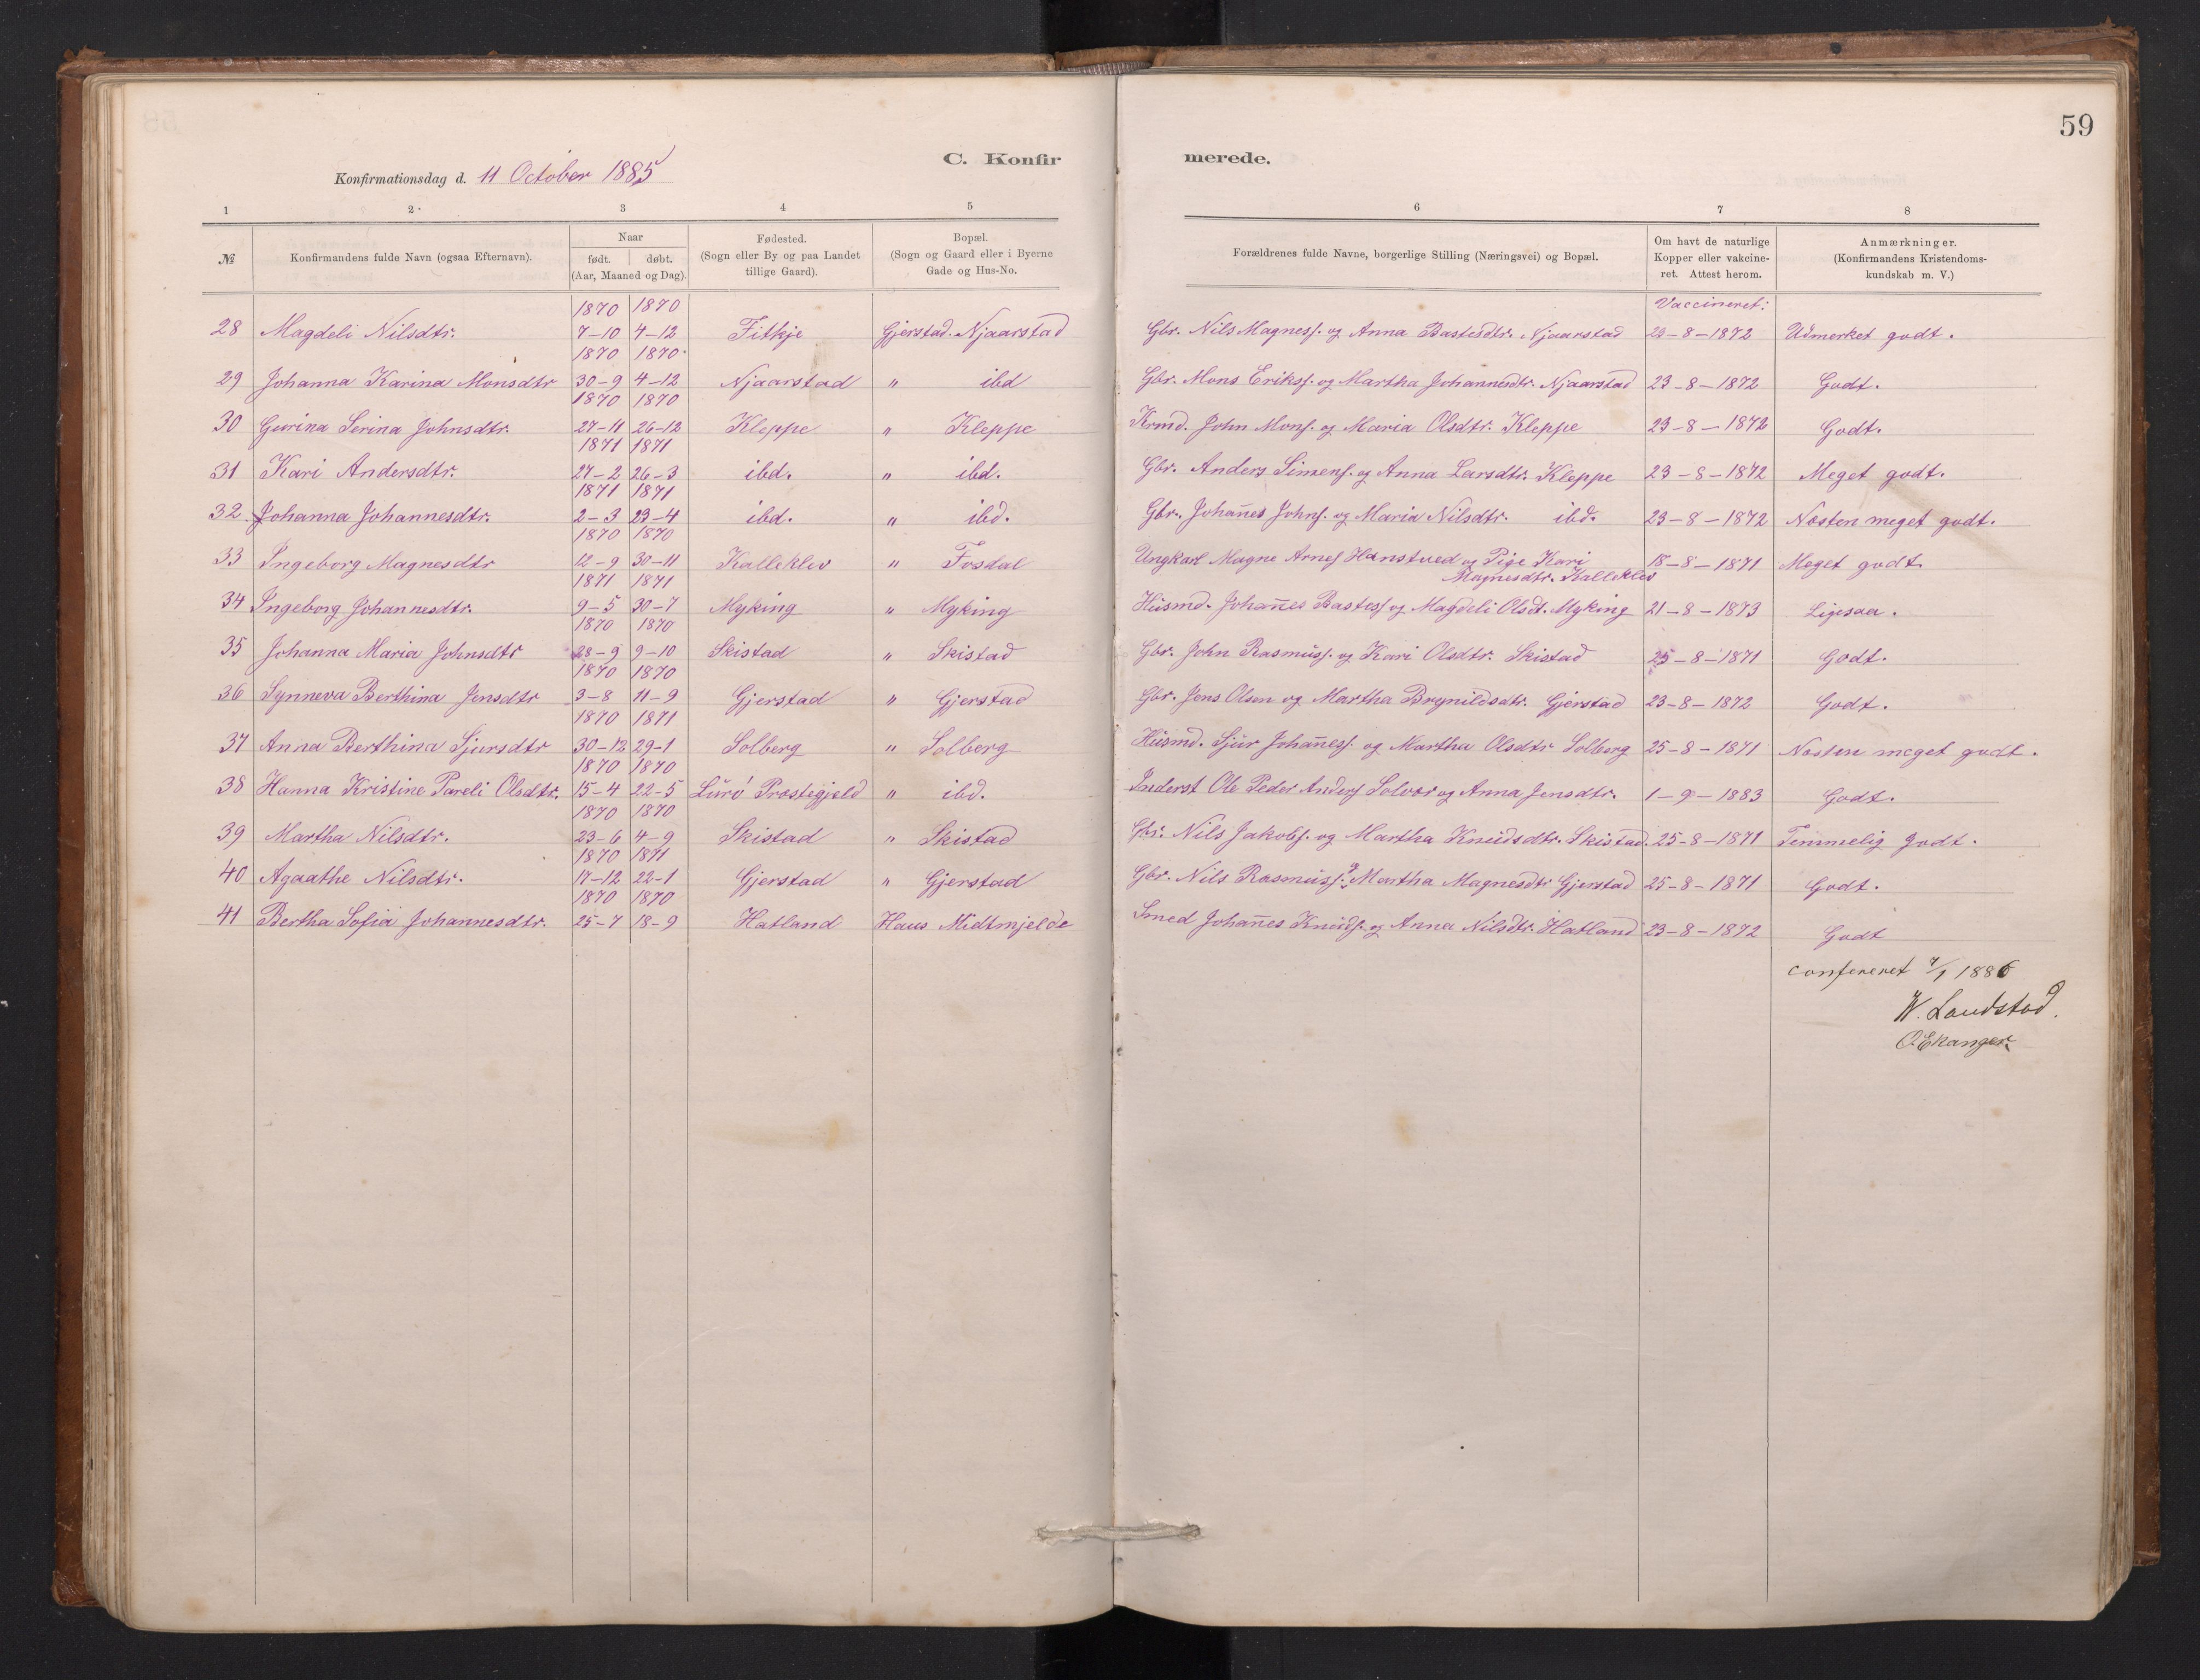 59
C. Konfirmerede.
Konfirmationsdag d. 11 October 1885
1 2. 3 4 5 6 7 8
№ Konfirmandens fulde Navn (ogsaa Efternavn). Naar født. døbt. (Aar, Maaned og Dag). Fødested. (Sogn eller By og paa Landet tillige Gaard). Bopæl. (Sogn og Gaard eller i Byerne Gade og Hus-No. Forældrenes fulde Navne, borgerlige Stilling (Næringsvei) og Bopæl. Om havt de naturlige Kopper eller vakcineret. Attest herom. Anmærkninger. (Konfirmandens Kristendomskundskab m. V.)
1870 1870 Vaccineret:
28 Magdeli Nilsdtr. 7-10 4-12 Fitkje Gjerstad. Njaarstad Gbr. Nils Magness. og Anna Bastesdtr. Njaarstad 23-8-1872 Udmerket godt.
1870 1870
29 Johanna Karina Monsdtr 30-9 4-12 Njaarstad " ibd Gbr. Mons Erikss. og Martha Johannesdtr. Njaarstad 23-8-1872 Godt.
1870 1870
30 Gurina Serina Johnsdtr. 27-11 26-12 Kleppe " Kleppe Krmd. John Mons. og Maria Olsdtr. Kleppe 23-8-1872 Godt.
1871 1871
31 Kari Andersdtr. 27-2 26-3 ibd. " ibd. Gbr. Anders Simens. og Anna Larsdtr. Kleppe 23-8-1872 Meget godt.
1871 1871
32 Johanna Johannesdtr. 2-3 23-4 ibd. " ibd. Gbr. Johan̅es Johns. og Maria Nilsdtr. ibd. 23-8-1872 Næsten meget godt.
1870 1870
33 Ingeborg Magnesdtr 12-9 30-11 Kalleklev " Fosdal Ungkarl Magne Arnes Hanstved og Pige Kari Magnesdtr. Kalleklev 18-8-1871 Meget godt
1871 1871
34 Ingeborg Johannesdtr. 9-5 30-7 Myking " Myking Husmd. Johan̅es Bastess og Magdeli Olsdt. Myking 21-8-1873 Ligesaa.
1870 1870
35 Johanna Maria Johnsdtr 28-9 9-10 Skistad " Skistad Gbr. John Rasmuss. og Kari Olsdtr. Skistad 25-8-1871 Godt.
1870 1870
36 Synneva Berthina Jensdtr 3-8 11-9 Gjerstad " Gjerstad Gbr. Jens Olsen og Martha Brynildsdtr. Gjerstad 23-8-1872 Godt.
1870 1871
37 Anna Berthina Sjursdtr 30-12 29-1 Solberg " Solberg Husmd. Sjur Johan̅ess. og Martha Olsdtr Solberg 25-8-1871 Næsten meget godt.
1870 1870
38 Hanna Kristine Pareli Olsdtr. 15-4 22-5 Lurö Præstegjeld " ibd. Inderst Ole Peder Anders Solvær og Anna Jensdtr. 1-9-1883 Godt.
1870 1870
39 Martha Nilsdtr. 23-6 4-9 Skistad " Skistad Gbr. Nils Jakobs. og Martha Knudsdtr. Skistad. 25-8-1871 Temmelig godt.
1870 1871
40 Agaathe Nilsdtr. 17-12 22-1 Gjerstad " Gjerstad Gbr. Nils Rasmuss. og Martha Magnesdtr Gjerstad 25-8-1871 Godt.
1870 1870
41 Bertha Sofia Johannesdtr. 25-7 18-9 Hatland Haus Midtmjelde Smed Johan̅es Knuds. og Anna Nilsdtr. Hatland 23-8-1872 Godt
confereret 7/1 1886
W. Landstad.
O. Ekanger